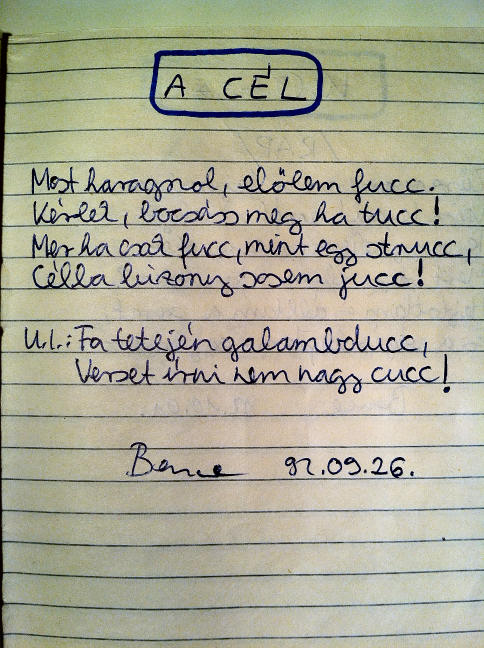 A CÉL
Most haragszol, előlem fucc.
Kérlek, bocsáss meg ha tucc!
Mer ha csak fucc, mint egy strucc,
Célla bizony sosem jucc!
U.i.: Fa tetején galambducc,
Verset írni nem nagy cucc!
Bence 92.09.26.